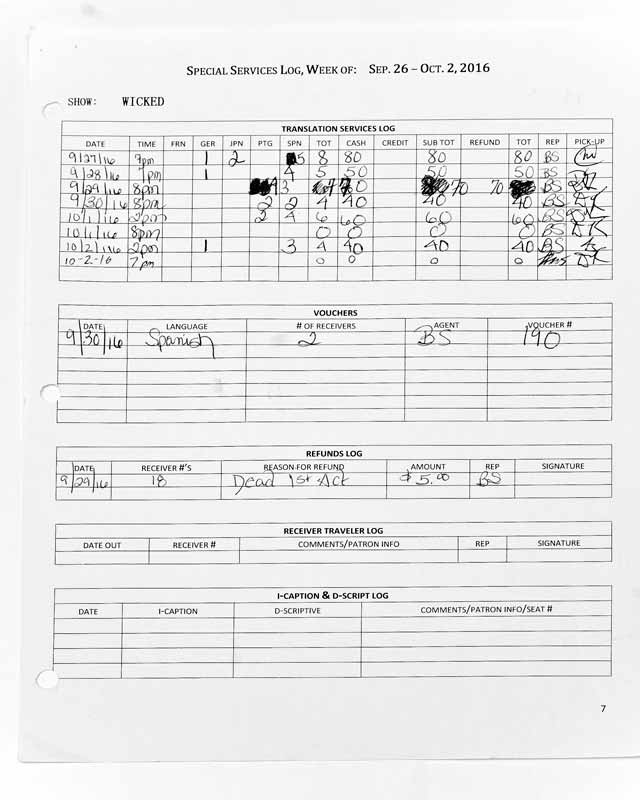 SPECIAL SERVICES LOG, WEEK OF: SEP. 26 – OCT. 2, 2016
SHOW: WICKED
TRANSLATION SERVICES LOG
DATE TIME FRN GER JPN PTG SPN TOT CASH CREDIT SUB TOT REFUND TOT REP PICK-UP
9/27/16 7pm 1 2 5 8 80 80 80 BS
9/28/16 7pm 1 4 5 50 50 50 BS
9/29/16 8pm 4 3 70 70 BS
9/30/16 8pm 2 2 4 40 40 40 BS DK
10/1/16 2pm 2 4 6 60 60 60 BS
10/1/16 8pm 0 0 0 0 BS DK
10/2/16 2pm 1 3 4 40 40 40 BS
10-2-16 7pm 0 0 0 0 DK
VOUCHERS
DATE LANGUAGE # OF RECEIVERS AGENT VOUCHER #
9/30/16 Spanish 2 BS 190
REFUNDS LOG
DATE RECEIVER #'S REASON FOR REFUND AMOUNT REP SIGNATURE
9/29/16 18 Dead 1st Act $5.00 BS
RECEIVER TRAVELER LOG
DATE OUT RECEIVER # COMMENTS/PATRON INFO REP SIGNATURE
I-CAPTION & D-SCRIPT LOG
DATE I-CAPTION D-SCRIPTIVE COMMENTS/PATRON INFO/SEAT #
7